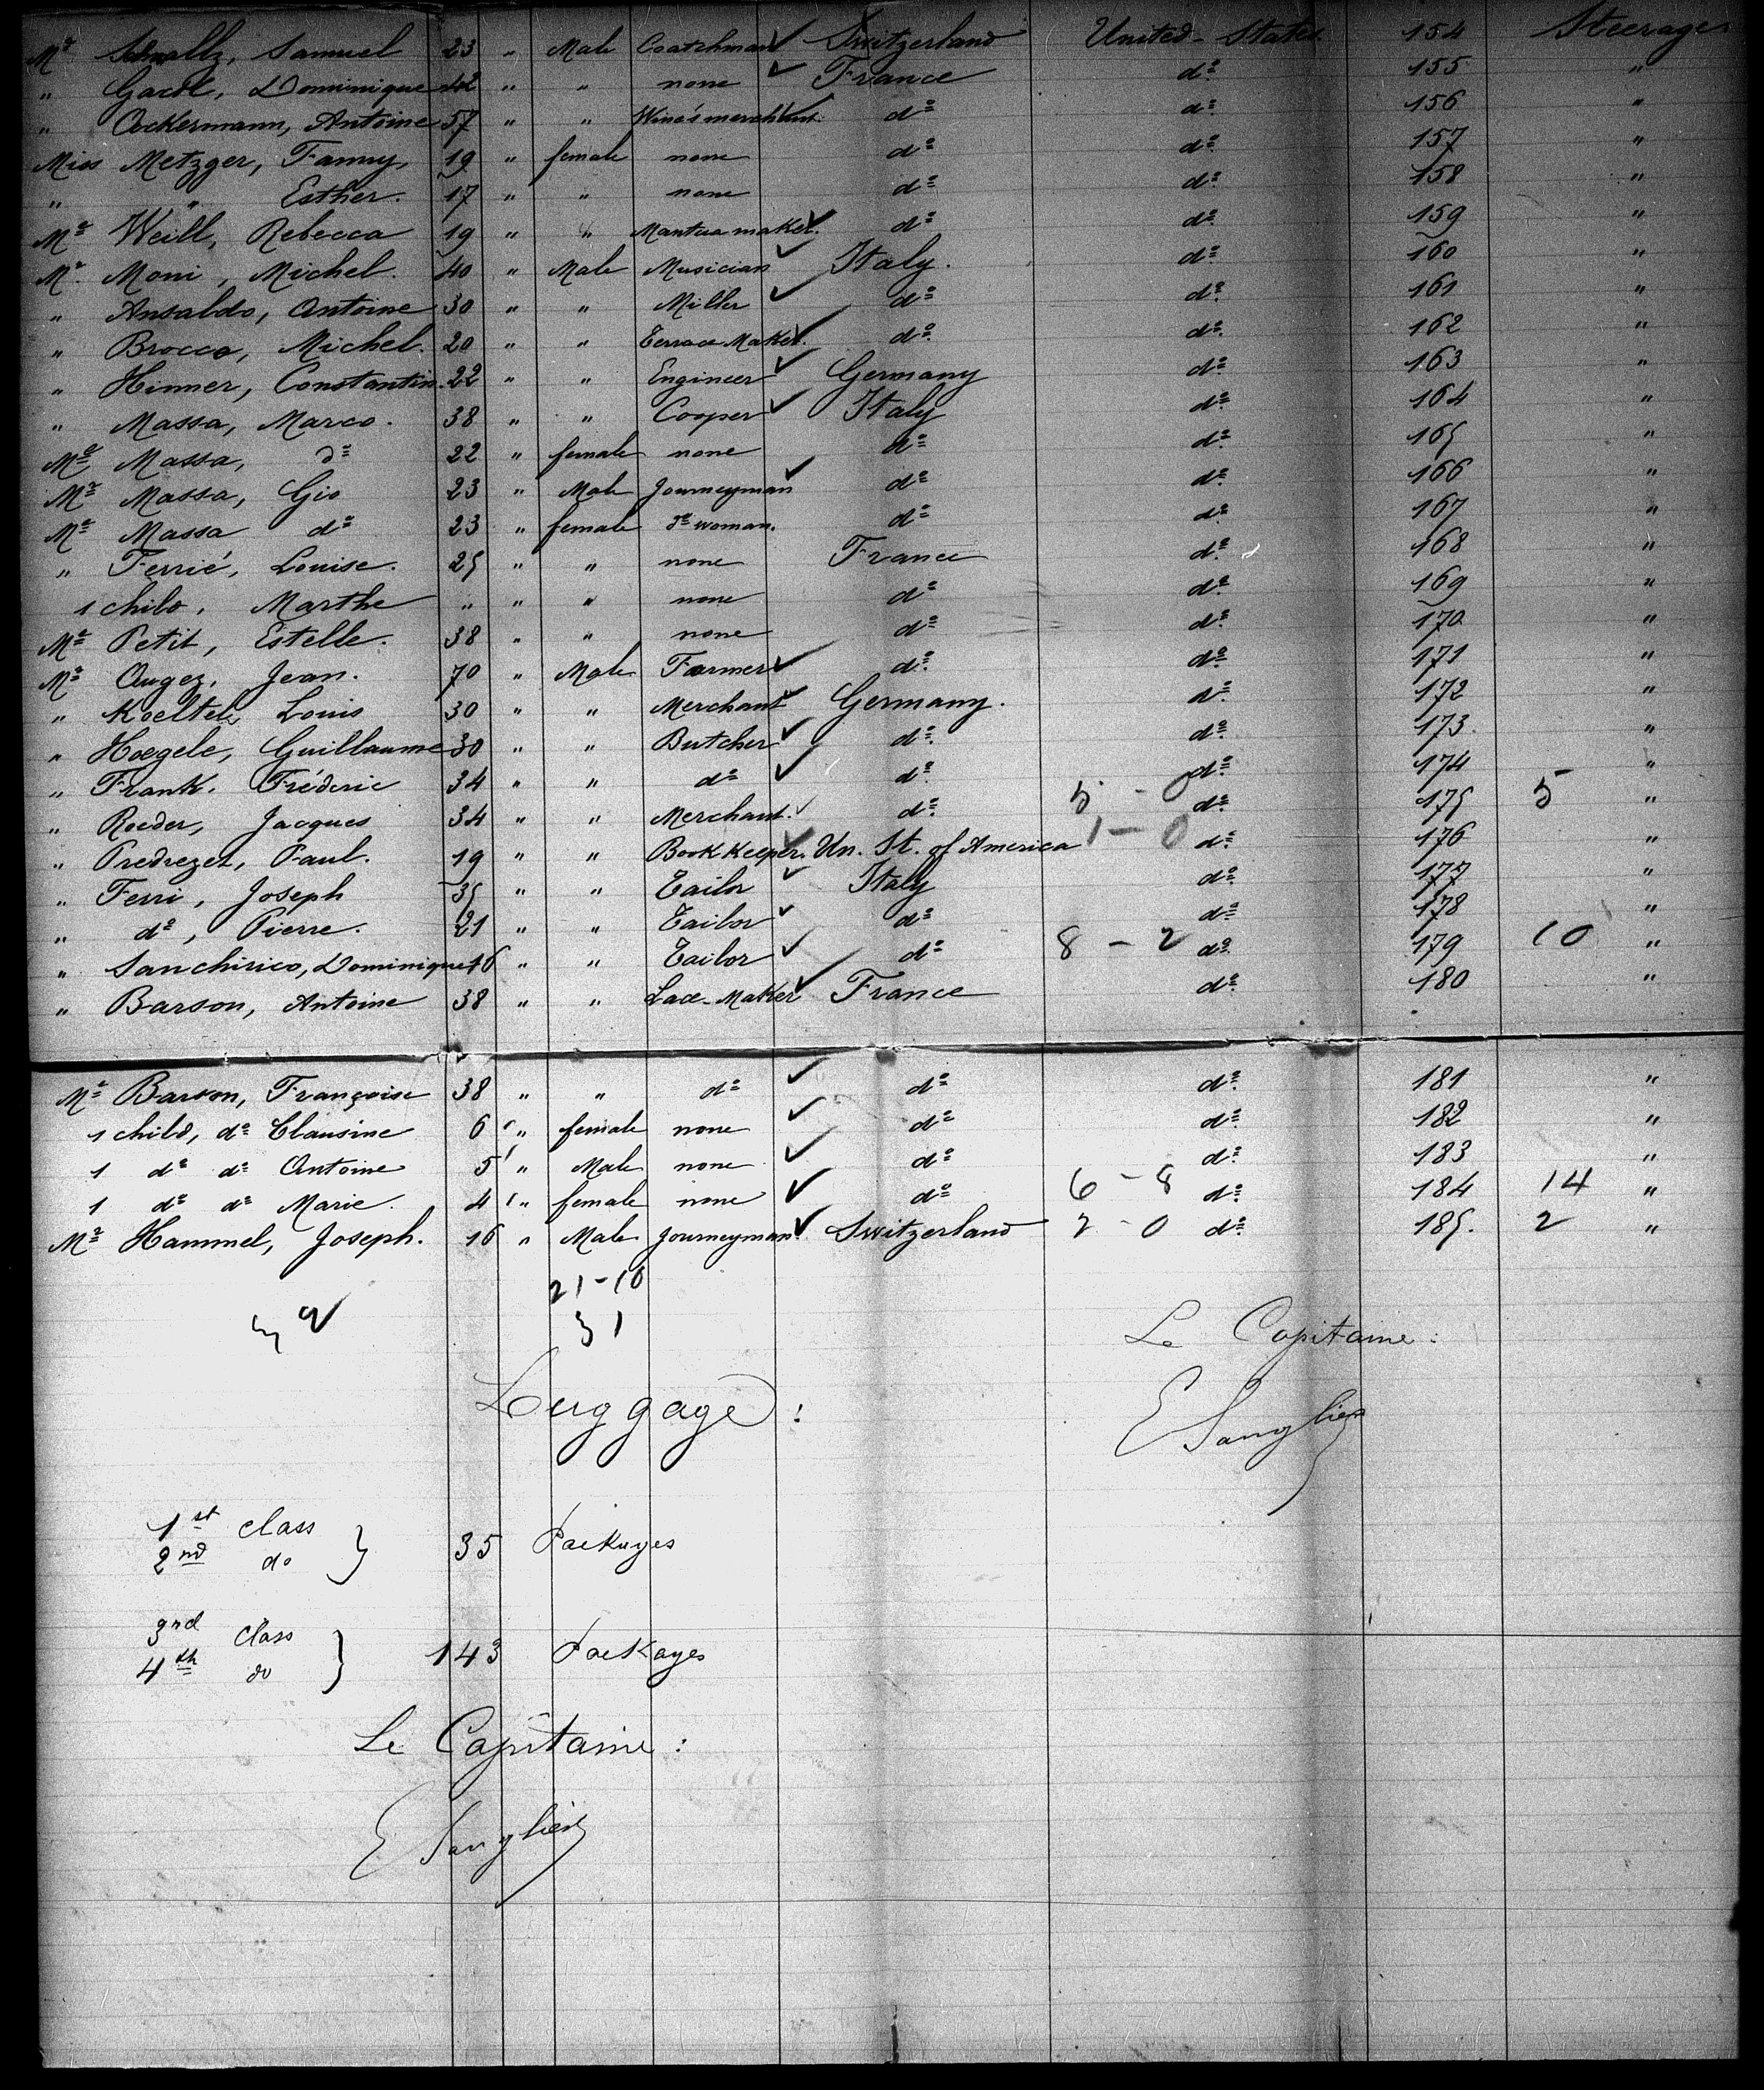 Mr Schwallz, Samuel 23 " Male Coatchman Switzerland United-States 154 Steerage
" Gacol, Dominique 42 " " none France do 155 "
" Ockermann, Antoine 57 " " Wine's merchant do do 156 "
Miss Metzger, Fanny, 19 " female none do do 157 "
" " Esther. 17 " " none do do 158 "
Me Weill, Rebecca 19 " " Mantua maker. do do 159 "
Mr. Moni, Michel. 40 " Male Musician Italy. do 160 "
" Ansaldo, Antoine 30 " " Miller do do 161 "
" Brocco, Michel. 20 " " Terrace Maker. do do 162 "
" Hinner, Constantin. 22 " " Engineer Germany do 163 "
" Massa, Marco. 38 " " Cooper Italy do 164 "
Me Massa, do 22 " female none do do 165 "
Mr Massa, Gio 23 " Male Journeyman do do 166 "
Me Massa do 23 " female do woman. do do 167 "
" Ferrié, Louise. 25 " " none France do 168 "
1 child, Marthe " " " none do do 169 "
Me Petit, Estelle. 38 " " none do do 170 "
Mr Augez, Jean. 70 " Male Farmer do do 171 "
" Koeltel, Louis 30 " " Merchant Germany. do 172 "
" Hoegele, Guillaume 30 " " Butcher do do 173. "
" Frank. Fréderic 34 " " do do do 174 "
" Reeder, Jacques 34 " " Merchant. do 5 - 0 do 175 5 "
" Predrezet, Paul. 19 " " Book Keeper. Un. St. of America 1 - 0 do 176 "
" Ferri, Joseph 35 " " Tailor Italy do 177 "
" do, Pierre. 21 " " Tailor do do 178 "
" Sanchirico, Dominique 16 " " Tailor do 8 - 2 do 179 10 "
" Barson, Antoine 38 " " Lace-Maker France do 180 "
Me Barson, Françoise 38 " " do do do 181 "
1 child, do Clausine 6 " female none do do 182 "
1 do do Antoine 5 " Male none do do 183 "
1 do do Marie. 4 " female none do 6 - 8 do 184 14 "
Mr Hammel, Joseph. 16 " Male Journeyman. Switzerland 2 - 0 do 185. 2 "
21-10
31
Le Capitaine:
Luggage:
E Sanglier
1st class
2nd do } 35 Packages
3rd class
4th do } 143 Packages
Le Capitaine:
E Sanglier